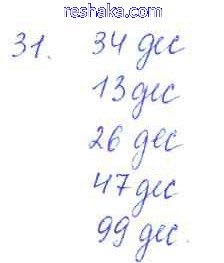 reshaka.com
31. 34 дес
13 дес
26 дес
47 дес
99 дес.